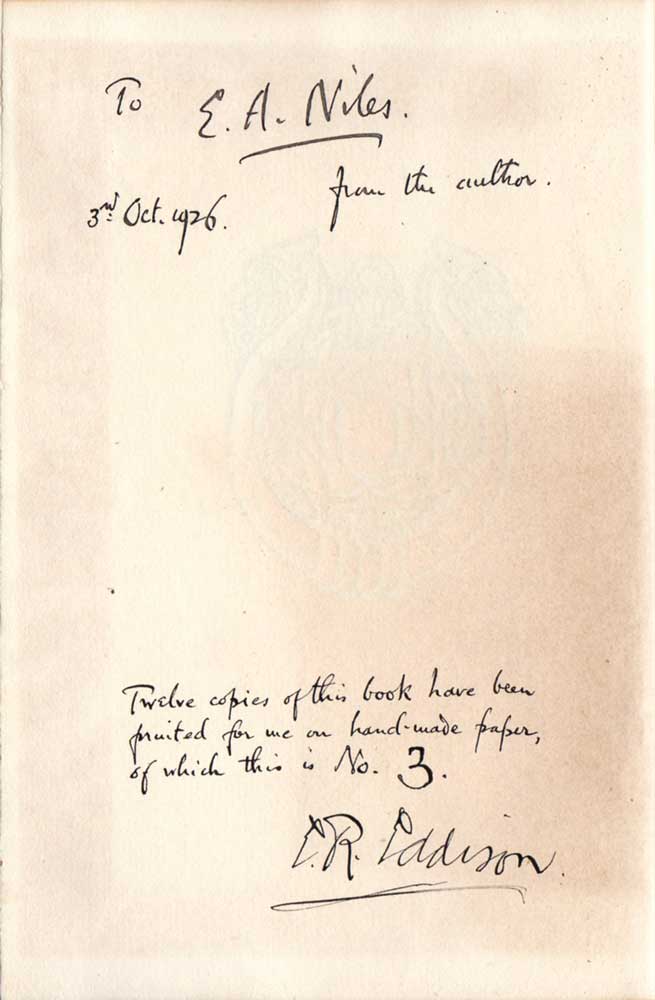 To E. A. Niles.
from the author.
3rd Oct. 1926.
Twelve copies of this book have been
printed for me on hand-made paper,
of which this is No. 3.
E. R. Eddison.